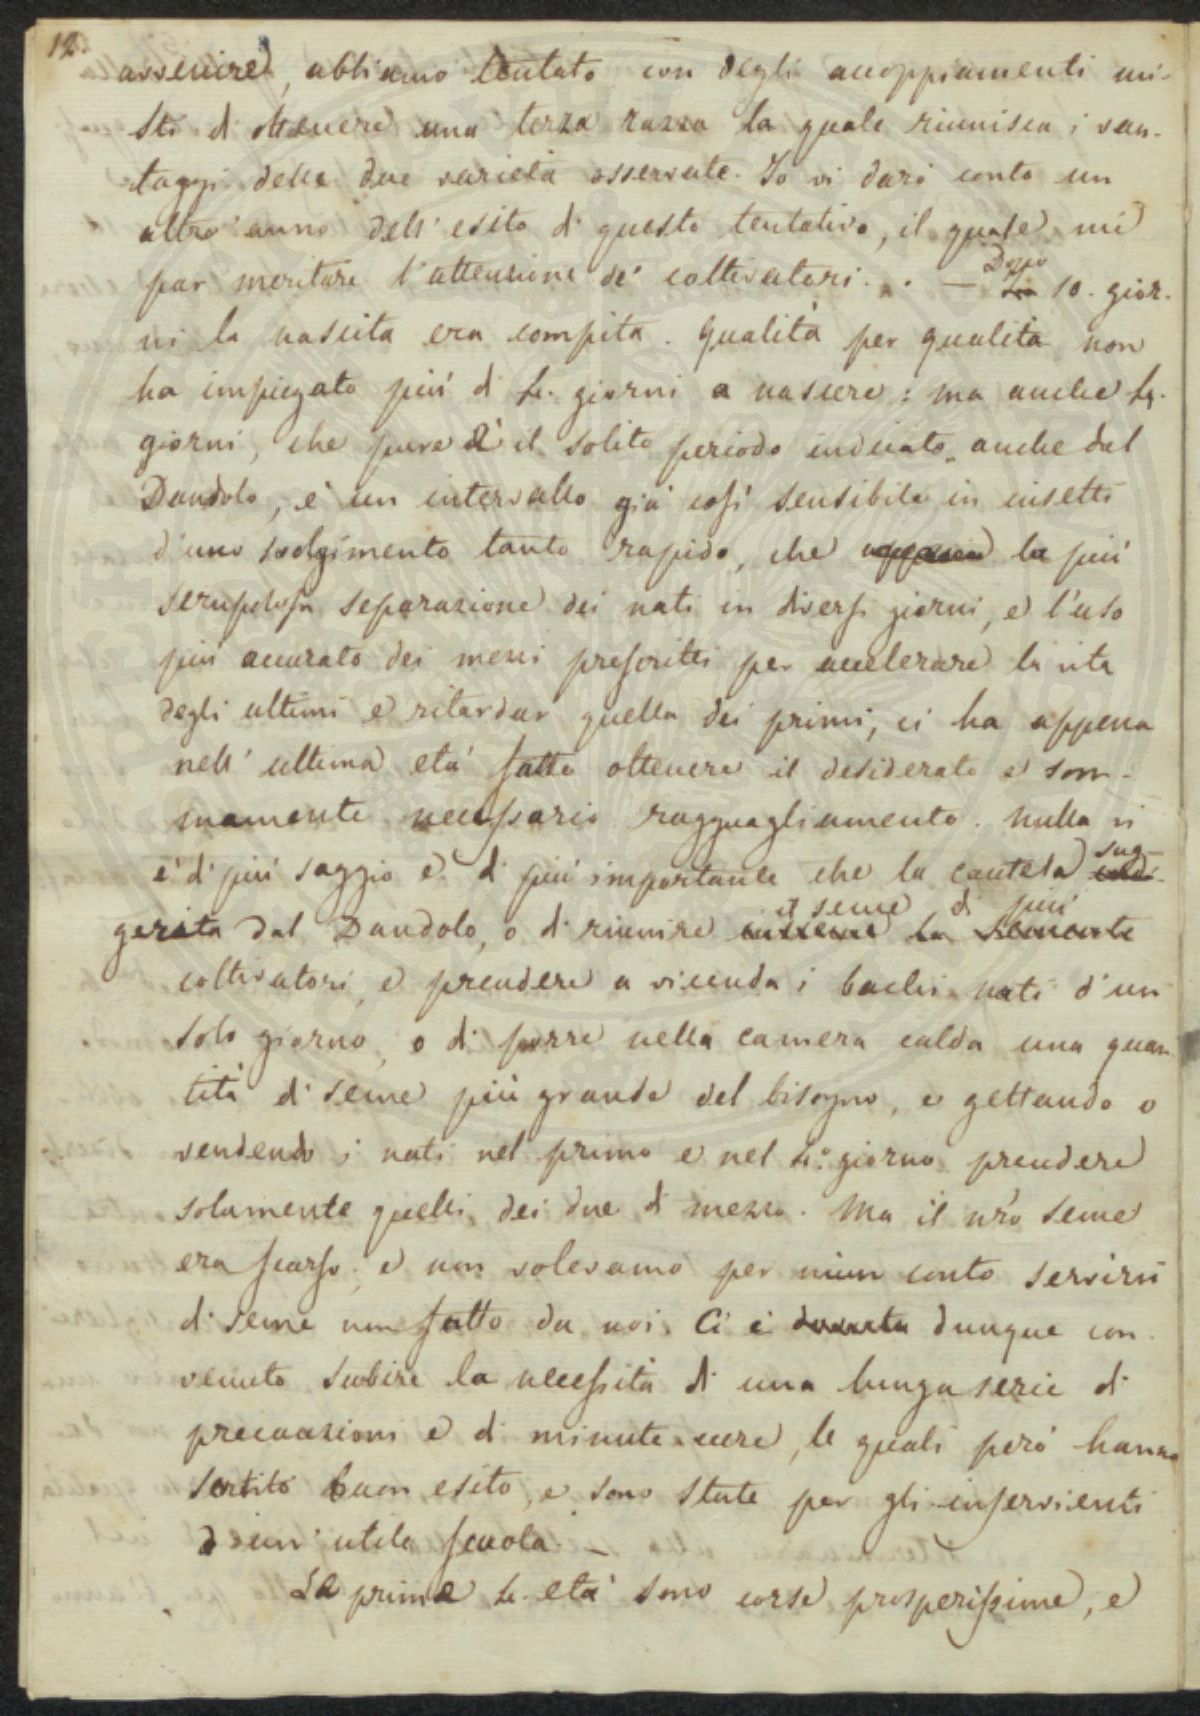 12.
avvenire, abbiamo tentato con degli accoppiamenti mi-
sti di ottenere una terza razza la quale riunisca i van-
taggi delle due varietà osservate. Io vi darò conto un
altro anno dell'esito di questo tentativo, il quale mi
par meritare l'attenzione de' coltivatori. . — Dopo 10. gior-
ni la nascita era compita. Qualità per qualità non
ha impiegato più di 4. giorni a nascere: ma anche 4.
giorni, che pure è il solito periodo indicato anche dal
Dandolo, è un intervallo già così sensibile in insetti
d'uno svolgimento tanto rapido, che appena la più
scrupolosa separazione dei nati in diversi giorni, e l'uso
più accurato dei mezzi prescritti per accelerare la vita
degli ultimi e ritardar quella dei primi, ci ha appena
nell'ultima età fatto ottenere il desiderato e som-
mamente necessario ragguagliamento. Nulla vi
è di più saggio e di più importante che la cautela sug-
gerita dal Dandolo, o di riunire il seme di più
coltivatori, e prendere a vicenda i bachi nati d'un
solo giorno, o di porre nella camera calda una quan
tità di seme più grande del bisogno, e gettando o
vendendo i nati nel primo e nel 4.° giorno prendere
solamente quelli dei due di mezzo. Ma il nro seme
era scarso, e non volevamo per niun conto servirsi
di seme non fatto da noi. Ci è dunque con-
venuto subire la necessità di una lunga serie di
precauzioni e di minute cure, le quali però hanno
sortito buon esito, e sono state per gli inservienti
d'un'utile scuola. —
Le prime 4. età sono corse prosperissime, e